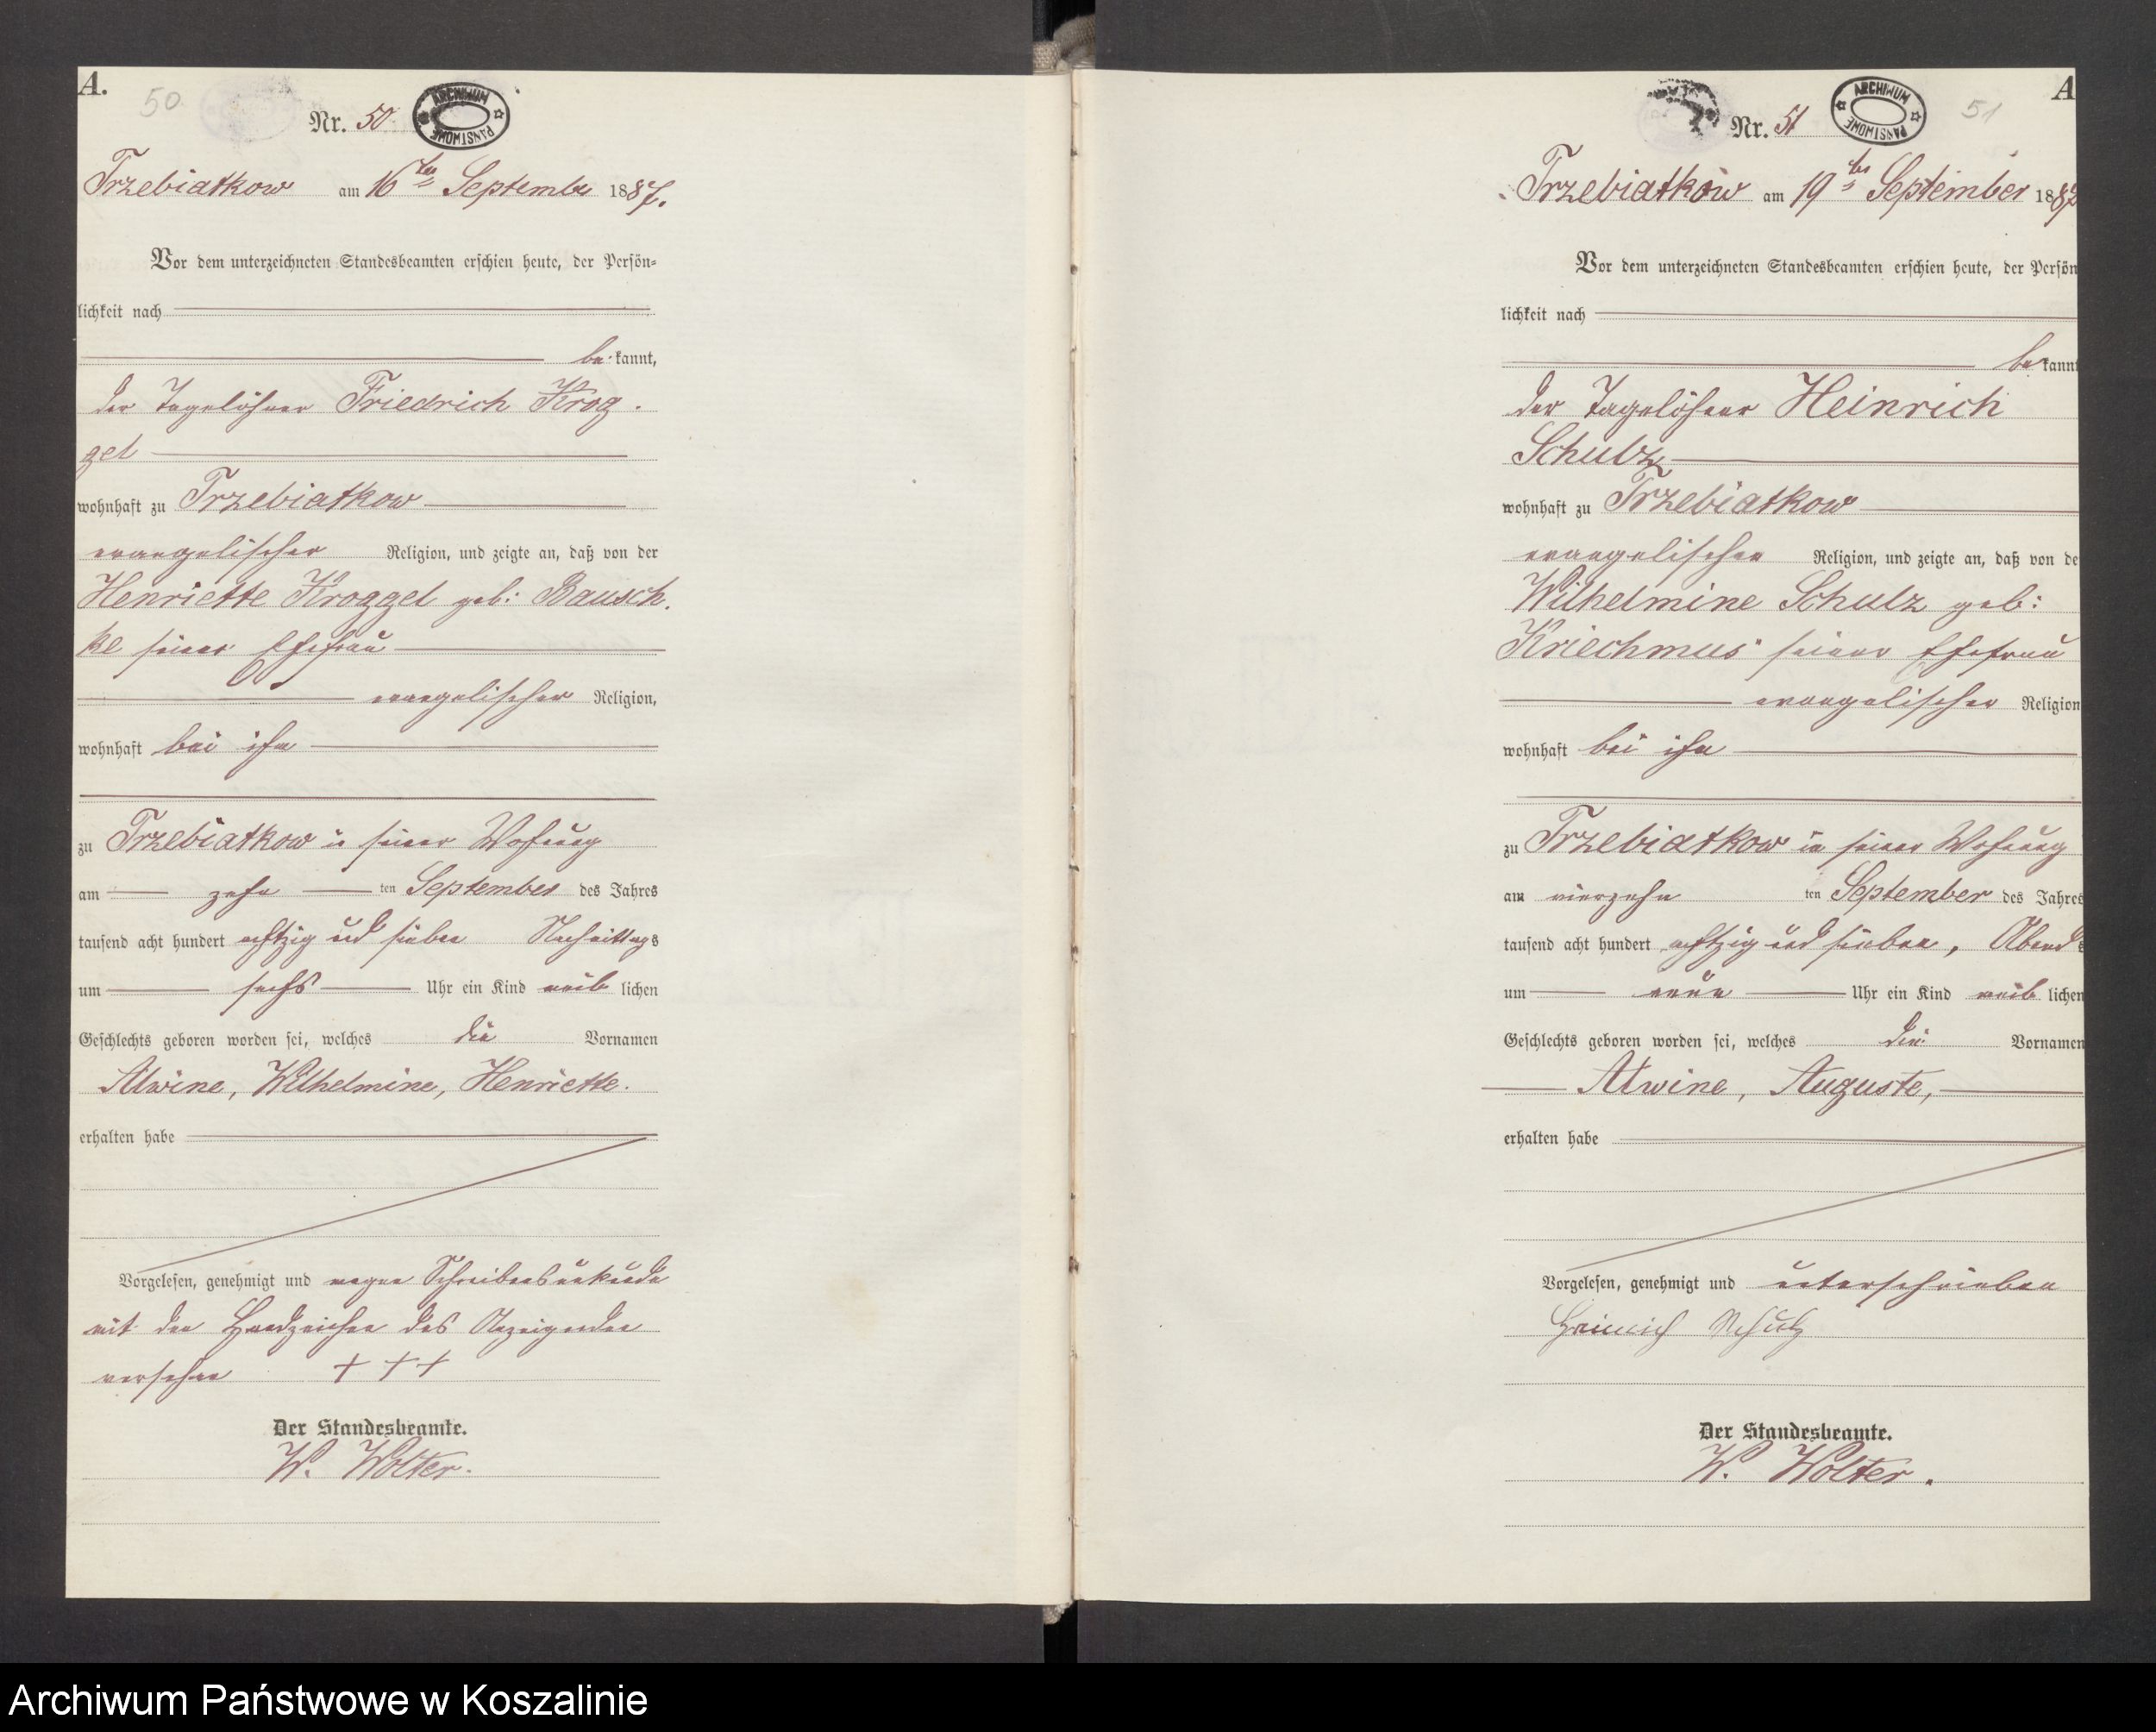 A.
50
Nr. 50
ARCHIWUM PAŃSTWOWE
Trzebiatkow am 16ten September 1887.
Vor dem unterzeichneten Standesbeamten erschien heute, der Persön=
lichkeit nach
be kannt,
der Tagelöhner Friedrich Krog-
gel
wohnhaft zu Trzebiatkow
evangelischer Religion, und zeigte an, daß von der
Henriette Kroggel geb: Bausch-
ke seiner Ehefrau
evangelischer Religion,
wohnhaft bei ihm
zu Trzebiatkow in seiner Wohnung
am zehn ten September des Jahres
tausend acht hundert achtzig und sieben Nachmittags
um sechs Uhr ein Kind weib lichen
Geschlechts geboren worden sei, welches die Vornamen
Alwine, Wilhelmine, Henriette.
erhalten habe
Vorgelesen, genehmigt und wegen Schreibensunkunde
mit dem Handzeichen des Anzeigenden
versehen + + +
Der Standesbeamte.
W. Wolter.
A
51
Nr. 51
ARCHIWUM PAŃSTWOWE
Trzebiatkow am 19ten September 1887
Vor dem unterzeichneten Standesbeamten erschien heute, der Persön
lichkeit nach
be kannt
der Tagelöhner Heinrich
Schulz
wohnhaft zu Trzebiatkow
evangelischer Religion, und zeigte an, daß von de
Wilhelmine Schulz geb:
Kriechmus seiner Ehefrau
evangelischer Religion
wohnhaft bei ihm
zu Trzebiatkow in seiner Wohnung
am vierzehn ten September des Jahres
tausend acht hundert achtzig und sieben, Abends
um neun Uhr ein Kind weib lichen
Geschlechts geboren worden sei, welches die Vornamen
Alwine, Auguste,
erhalten habe
Vorgelesen, genehmigt und unterschrieben
Heinrich Schulz
Der Standesbeamte.
W. Wolter.
Archiwum Państwowe w Koszalinie